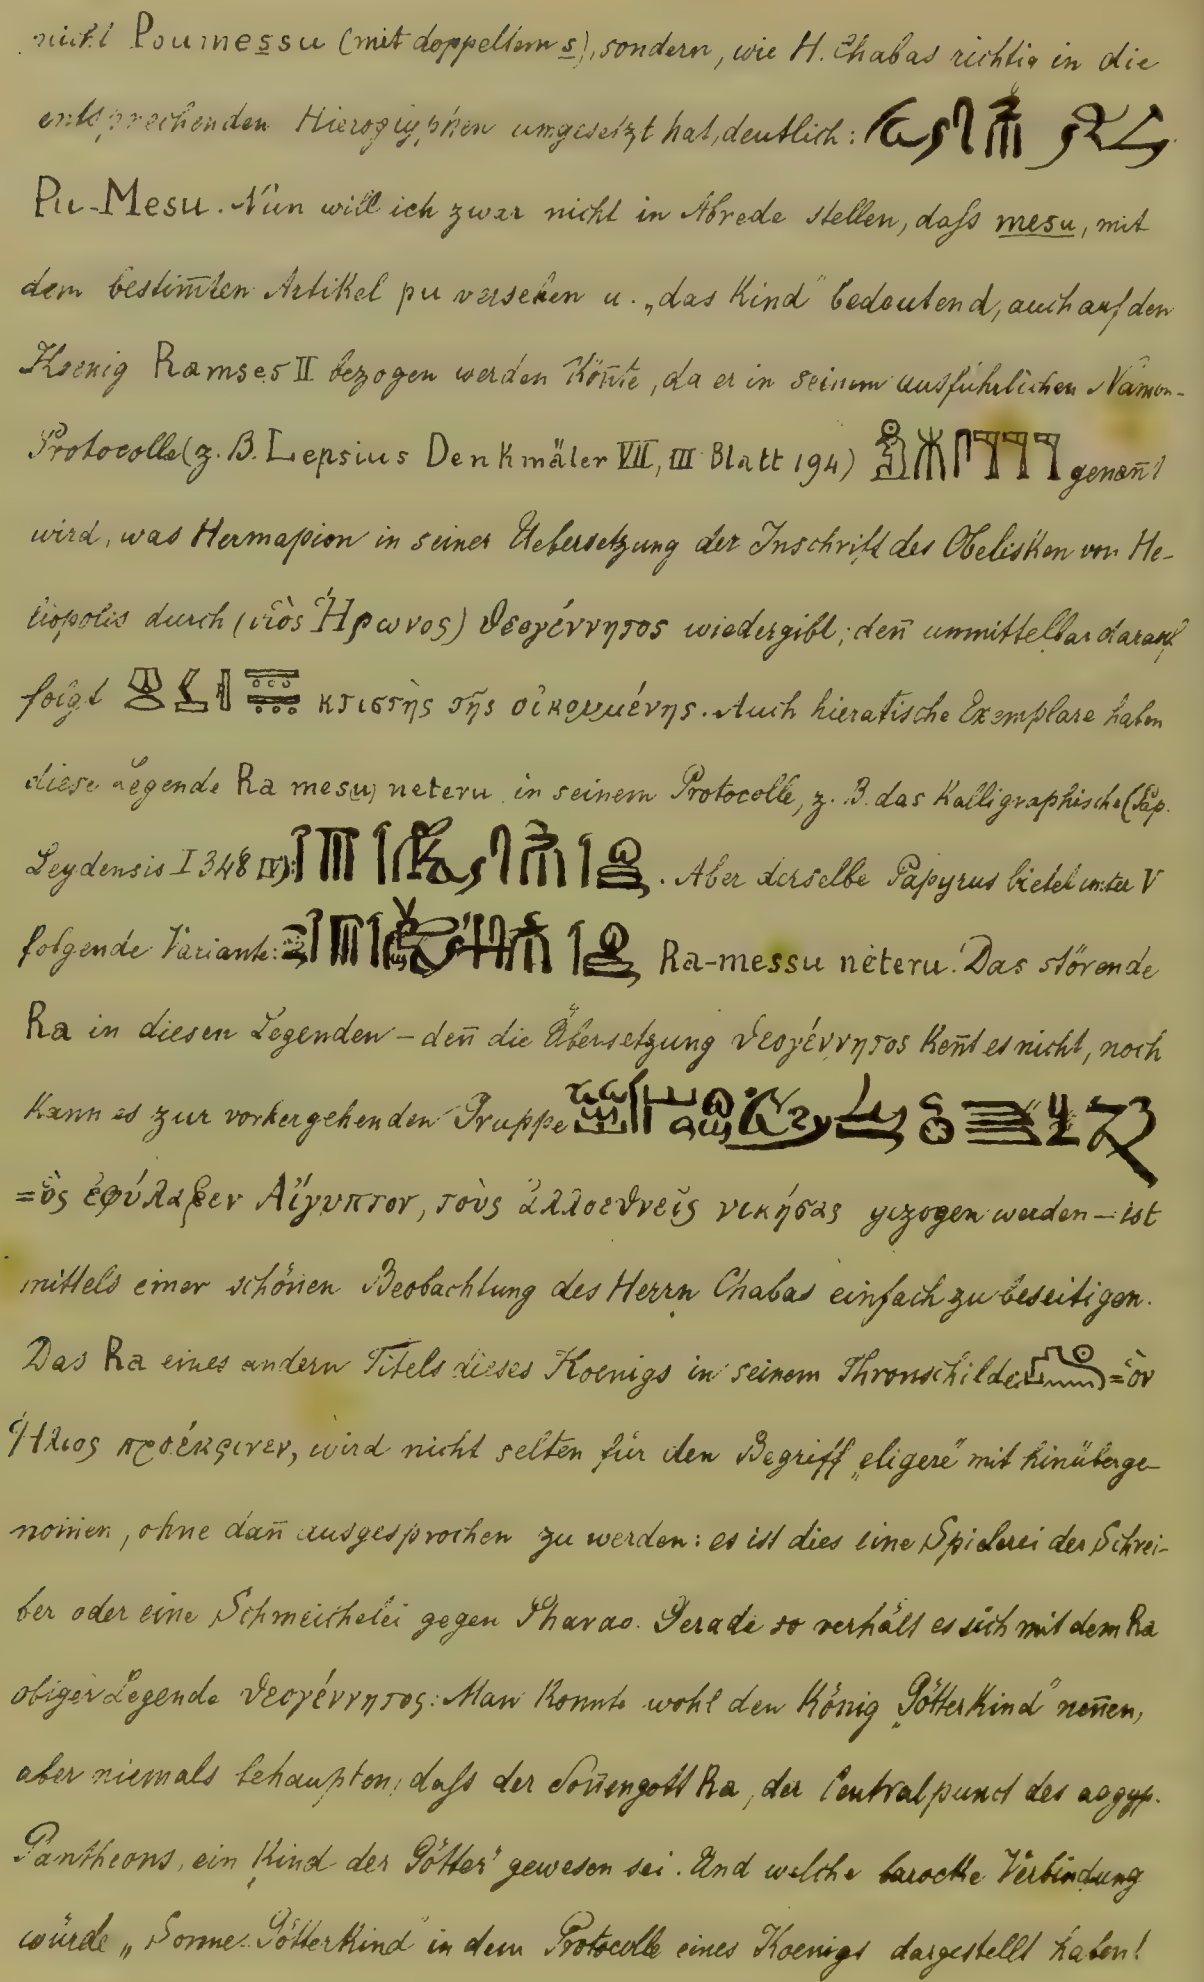 nicht Poumessu (mit doppeltem s), sondern, wie H. Chabas richtig in die
entsprechenden Hieroglyphen umgesetzt hat, deutlich:
Pu-Mesu. Nun will ich zwar nicht in Abrede stellen, daſs mesu, mit
dem bestim̄ten Artikel pu versehen u. „das Kind" bedeutend, auch auf den
Koenig Ramses II bezogen werden kön̄te, da er in seinem ausführlichen Namen-
Protocolle (z. B. Lepsius Denkmäler VII, III Blatt 194) genan̄t
wird, was Hermapion in seiner Uebersetzung der Inschrift des Obelisken von He-
liopolis durch (υἱὸς Ἥρωνος) θεογέννητος wiedergibt; den̄ unmittelbar darauf
folgt κτιστὴς τῆς οἰκουμένης. Auch hieratische Exemplare haben
diese Legende Ra mesu neteru in seinem Protocolle, z. B. das Kalligraphische (Pap.
Leydensis I 348 IV): . Aber derselbe Papyrus bietet unter V
folgende Variante: Ra-messu neteru. Das störende
Ra in diesen Legenden – den̄ die Übersetzung θεογέννητος ken̄t es nicht, noch
kann es zur vorhergehenden Gruppe
=ὃς ἐφύλαξεν Αἴγυπτον, τοὺς ἀλλοεθνεῖς νικήσας gezogen werden – ist
mittels einer schönen Beobachtung des Herrn Chabas einfach zu beseitigen.
Das Ra eines andern Titels dieses Koenigs in seinem Thronschilde =ὃν
Ἥλιος προέκρινεν, wird nicht selten für den Begriff „eligere" mit hinüberge-
nom̄en, ohne dan̄ ausgesprochen zu werden: es ist dies eine Spielerei der Schrei-
ber oder eine Schmeichelei gegen Pharao. Gerade so verhält es sich mit dem Ra
obiger Legende θεογέννητος: Man konnte wohl den König „Götterkind" nen̄en,
aber niemals behaupten, daſs der Son̄engott Ra, der Centralpunct des aegyp.
Pantheons, ein „Kind der Götter" gewesen sei. Und welche barocke Verbindung
würde „Sonne-Götterkind" in dem Protocolle eines Koenigs dargestellt haben!